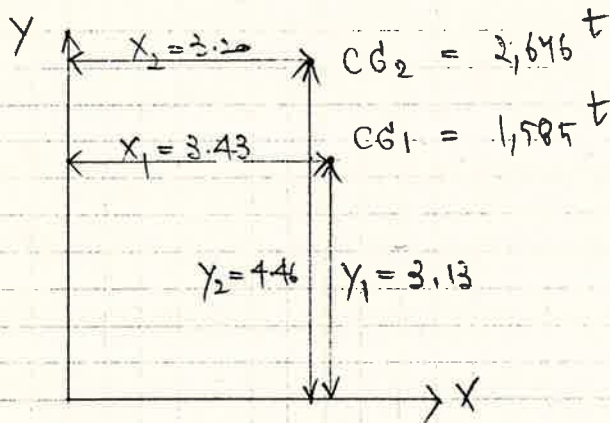 Y
X₂ = 3.20
CG₂ = 2,676 ᵗ
X₁ = 3.43
CG₁ = 1,585 ᵗ
Y₂ = 4.46
Y₁ = 3.13
X